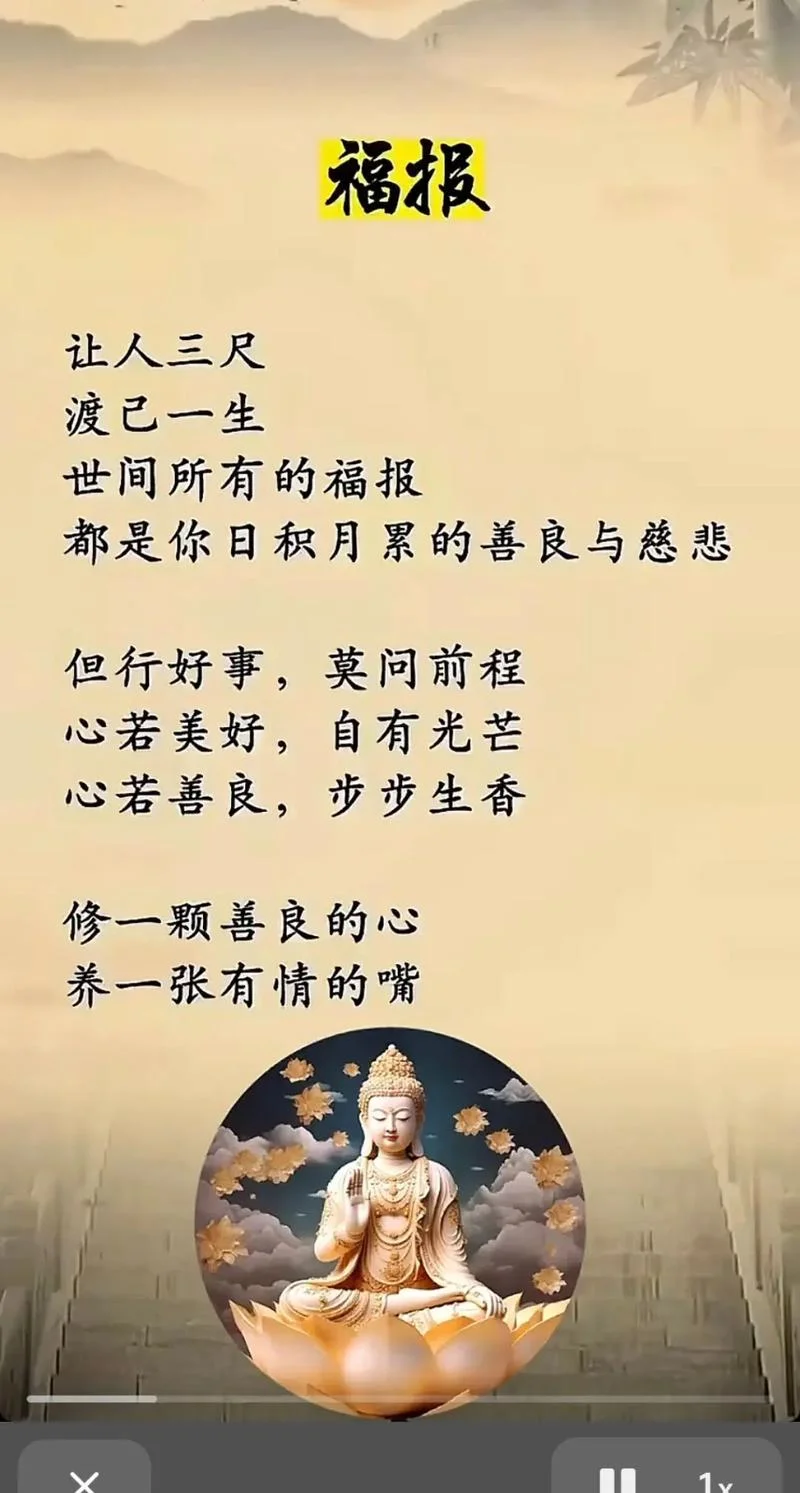 福报
让人三尺
渡己一生
世间所有的福报
都是你日积月累的善良与慈悲
但行好事，莫问前程
心若美好，自有光芒
心若善良，步步生香
修一颗善良的心
养一张有情的嘴
1x